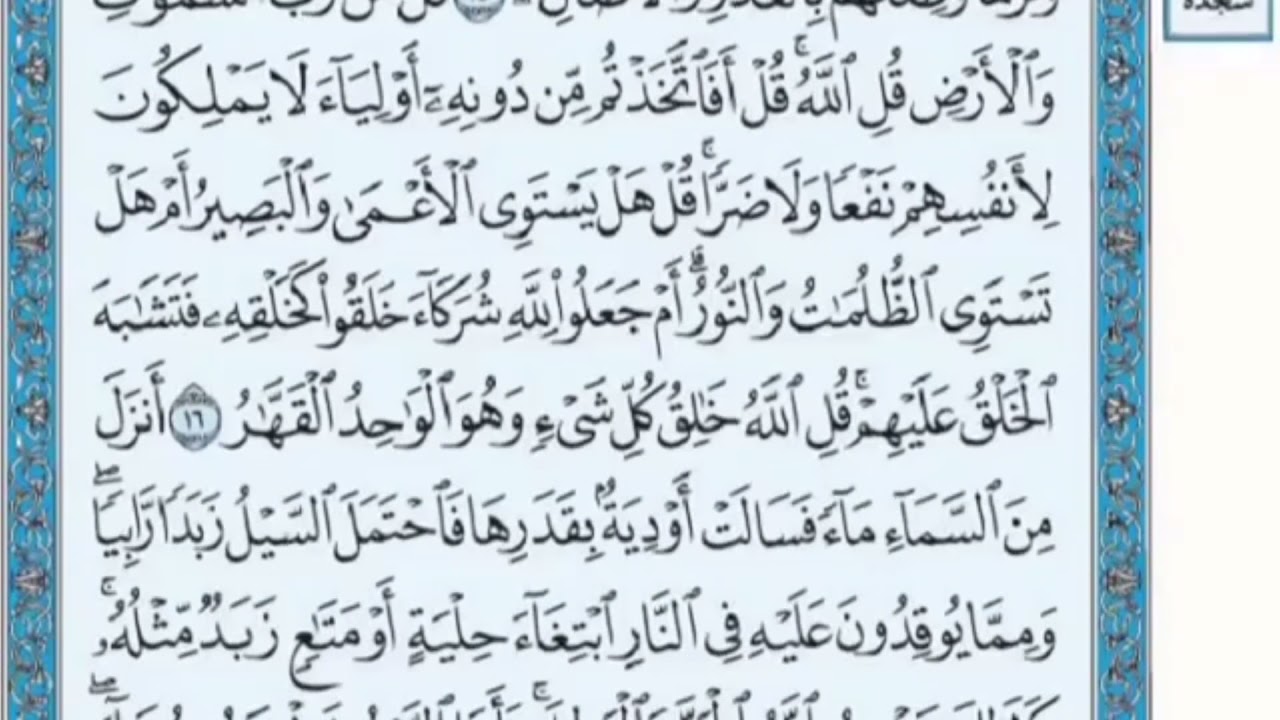 سجدة
وَٱلْأَرْضِ قُلِ ٱللَّهُ ۚ قُلْ أَفَٱتَّخَذْتُم مِّن دُونِهِۦٓ أَوْلِيَآءَ لَا يَمْلِكُونَ
لِأَنفُسِهِمْ نَفْعًا وَلَا ضَرًّا ۚ قُلْ هَلْ يَسْتَوِى ٱلْأَعْمَىٰ وَٱلْبَصِيرُ أَمْ هَلْ
تَسْتَوِى ٱلظُّلُمَٰتُ وَٱلنُّورُ ۗ أَمْ جَعَلُوا۟ لِلَّهِ شُرَكَآءَ خَلَقُوا۟ كَخَلْقِهِۦ فَتَشَٰبَهَ
ٱلْخَلْقُ عَلَيْهِمْ ۚ قُلِ ٱللَّهُ خَٰلِقُ كُلِّ شَىْءٍ وَهُوَ ٱلْوَٰحِدُ ٱلْقَهَّٰرُ ١٦ أَنزَلَ
مِنَ ٱلسَّمَآءِ مَآءً فَسَالَتْ أَوْدِيَةٌۢ بِقَدَرِهَا فَٱحْتَمَلَ ٱلسَّيْلُ زَبَدًا رَّابِيًا ۖ
وَمِمَّا يُوقِدُونَ عَلَيْهِ فِى ٱلنَّارِ ٱبْتِغَآءَ حِلْيَةٍ أَوْ مَتَٰعٍ زَبَدٌ مِّثْلُهُۥ ۚ